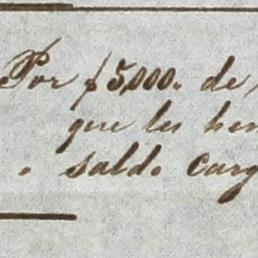 Por $5,000. de
que les hem
saldo carg